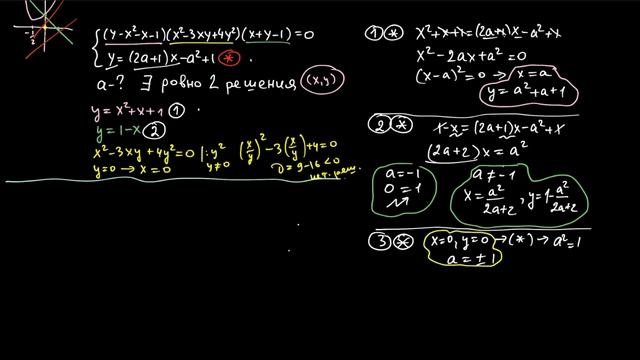 -1/2
{ (y-x²-x-1)(x²-3xy+4y²)(x+y-1)=0
y=(2a+1)x-a²+1 (*)
a-? ∃ ровно 2 решения (x,y)
y=x²+x+1 (1)
y=1-x (2)
x²-3xy+4y²=0 |:y² (x/y)²-3(x/y)+4=0
y=0→x=0 y≠0 D=9-16<0
нет реш.
1 (*) x²+x+1=(2a+1)x-a²+1
x²-2ax+a²=0
(x-a)²=0 → x=a
y=a²+a+1
2 (*) 1-x=(2a+1)x-a²+1
(2a+2)x=a²
a=-1 a≠-1
0=1 x=a²/(2a+2), y=1-a²/(2a+2)
3 (*) x=0, y=0 →(*)→ a²=1
a=±1